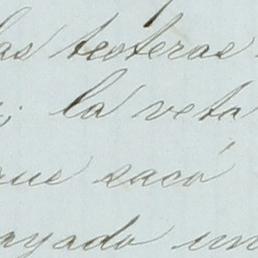 las testeras
; la veta
que sacó
ayado un